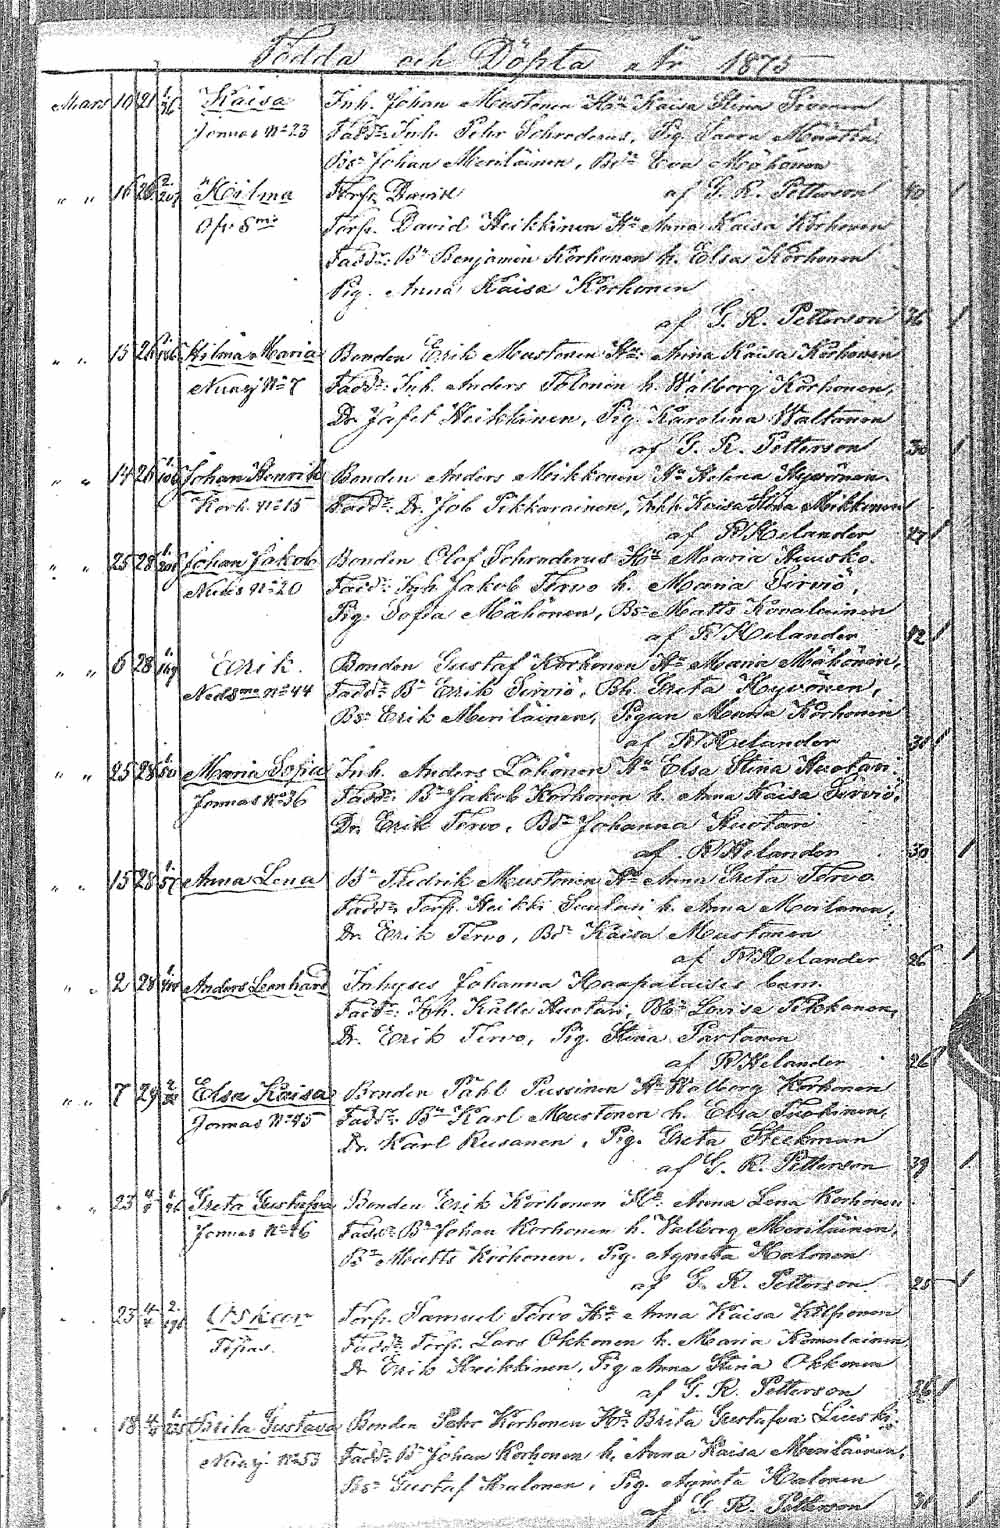 Födda och Döpta År 1875
Mars 10 21 1/36 Kaisa Inh. Johan Mustonen Hu Kaisa Stina Sivonen
Jormas No 23 Fadd: Inh. Pehr Schroderus, Pig. Saara Määttä
Bs Johan Meriläinen, Bd Eva Mähönen
" " 16 26 2/207 Hilma Torp. David af G. R. Petterson 40 1
Torp. David Heikkinen Hu Anna Kaisa Korhonen
Fadd: Bn Benjamin Korhonen h. Elsa Korhonen
Pig. Anna Kaisa Korhonen
af G. R. Petterson 36 1
" " 15 26 Hilma Maria Bonden Erik Mustonen Hu Anna Kaisa Korhonen
No 7 Fadd: Inh. Anders Tolonen h. Walborg Korhonen,
Dr. Jafet Heikkinen, Pig. Karolina Waltanen
af G. R. Petterson 30 1
" " 14 26 Johan Henrik Bonden Anders Mikkonen Hu Helena Hyvönen
Kork. No 15 Fadd: Dr. Job Pikkarainen, Kaisa Stina Mikkonen
af Helander 47 1
" " 25 28 1/201 Johan Jakob Bonden Olof Schroderus Hu Maria Huusko.
No 20 Fadd: Inh. Jakob Tervo h. Maria Sirviö,
Pig. Sofia Mähönen, Bs Matts Komulainen
af Helander 42 1
" " 6 28 1/169 Erik. Bonden Gustaf Korhonen Hu Maria Mähönen,
No 44 Fadd: Bn Erik Sirviö, Bh. Greta Hyvönen,
Bs Erik Meriläinen, Pigan Maria Korhonen
af Helander 31 1
" " 25 28 1/50 Maria Sofia Inh. Anders Lähönen Hu Elsa Stina Huotari
Jormas No 36 Fadd: Bn Jakob Korhonen h. Anna Kaisa Sirviö,
Dr. Erik Tervo, Bd Johanna Huotari
af Helander 30 1
" " 15 28 1/57 Anna Lena Bn Fredrik Mustonen Hu Anna Greta Tervo.
Fadd: Torp. Heikki h. Anna Moilanen,
Dr. Erik Tervo, Bd Kaisa Mustonen
af Helander 26 1
" " 2 28 Anders Leonhard Inhyses Johanna Haapalaises barn.
Fadd: Inh. Kalle Huotari, Lovisa Pikkanen,
Dr. Erik Tervo, Pig. Stina Partanen
af Helander 26 1
" " 7 29 Elsa Kaisa Bonden Påhl Pussinen Hu Walborg Korhonen
Jormas No 45 Fadd: Bn Karl Mustonen h. Elsa
Dr. Karl Rusanen, Pig. Greta Steckman
af G. R. Petterson 39 1
" " 23 1/26 Greta Gustafva Bonden Erik Korhonen Hu Anna Lena Korhonen
Jormas No 46 Fadd: Bn Johan Korhonen h. Valborg Meriläinen,
Bn Matts Korhonen, Pig. Agneta Halonen
af G. R. Petterson 25 1
23 4/4 Oskar Torp. Samuel Tervo Hu Anna Kaisa Kilponen
Fadd: Torp. Lars Okkonen h. Maria Komulainen
Dr Erik Heikkinen, Pig Anna Stina Okkonen
af G. R. Petterson 36 1
18 Brita Gustava Bonden Pehr Korhonen Hu Brita Gustafva
No 53 Fadd: Bn Johan Korhonen h. Anna Kaisa Meriläinen,
Bs Gustaf Halonen, Pig. Agneta Halonen
af G. R. Petterson 31 1